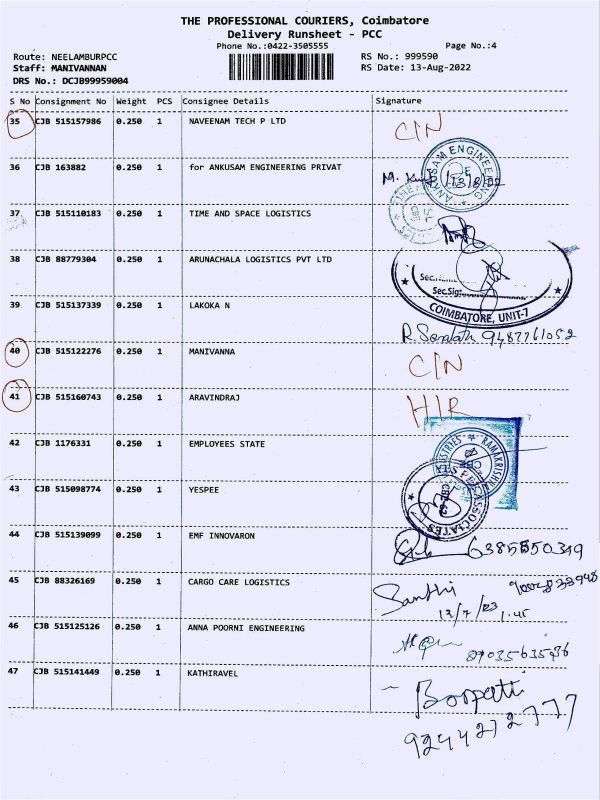 THE PROFESSIONAL COURIERS, Coimbatore
Delivery Runsheet - PCC
Phone No.:0422-3505555 Page No.:4
Route: NEELAMBURPCC RS No.: 999590
Staff: MANIVANNAN RS Date: 13-Aug-2022
DRS No.: DCJB99959004
S No Consignment No Weight PCS Consignee Details Signature
35 CJB 515157986 0.250 1 NAVEENAM TECH P LTD C/N
36 CJB 163882 0.250 1 for ANKUSAM ENGINEERING PRIVAT
ENGINEERING
37 CJB 515110183 0.250 1 TIME AND SPACE LOGISTICS
38 CJB 88779304 0.250 1 ARUNACHALA LOGISTICS PVT LTD
Sec.Sig
COIMBATORE, UNIT-7
39 CJB 515137339 0.250 1 LAKOKA N
40 CJB 515122276 0.250 1 MANIVANNA C/N
41 CJB 515160743 0.250 1 ARAVINDRAJ
42 CJB 1176331 0.250 1 EMPLOYEES STATE
43 CJB 515098774 0.250 1 YESPEE
ASSOCIATES
44 CJB 515139099 0.250 1 EMF INNOVARON
45 CJB 88326169 0.250 1 CARGO CARE LOGISTICS Santhi
13/7/23 1.45
46 CJB 515125126 0.250 1 ANNA POORNI ENGINEERING
47 CJB 515141449 0.250 1 KATHIRAVEL
9244272777